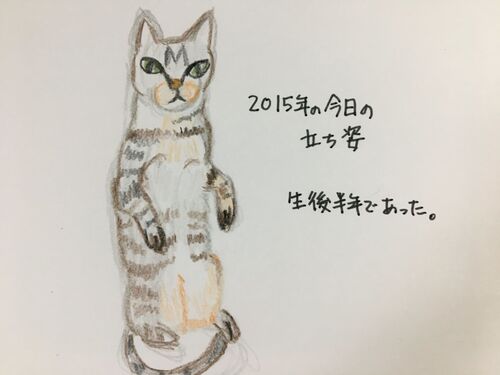 2015年の今日の
立ち姿
生後半年であった。